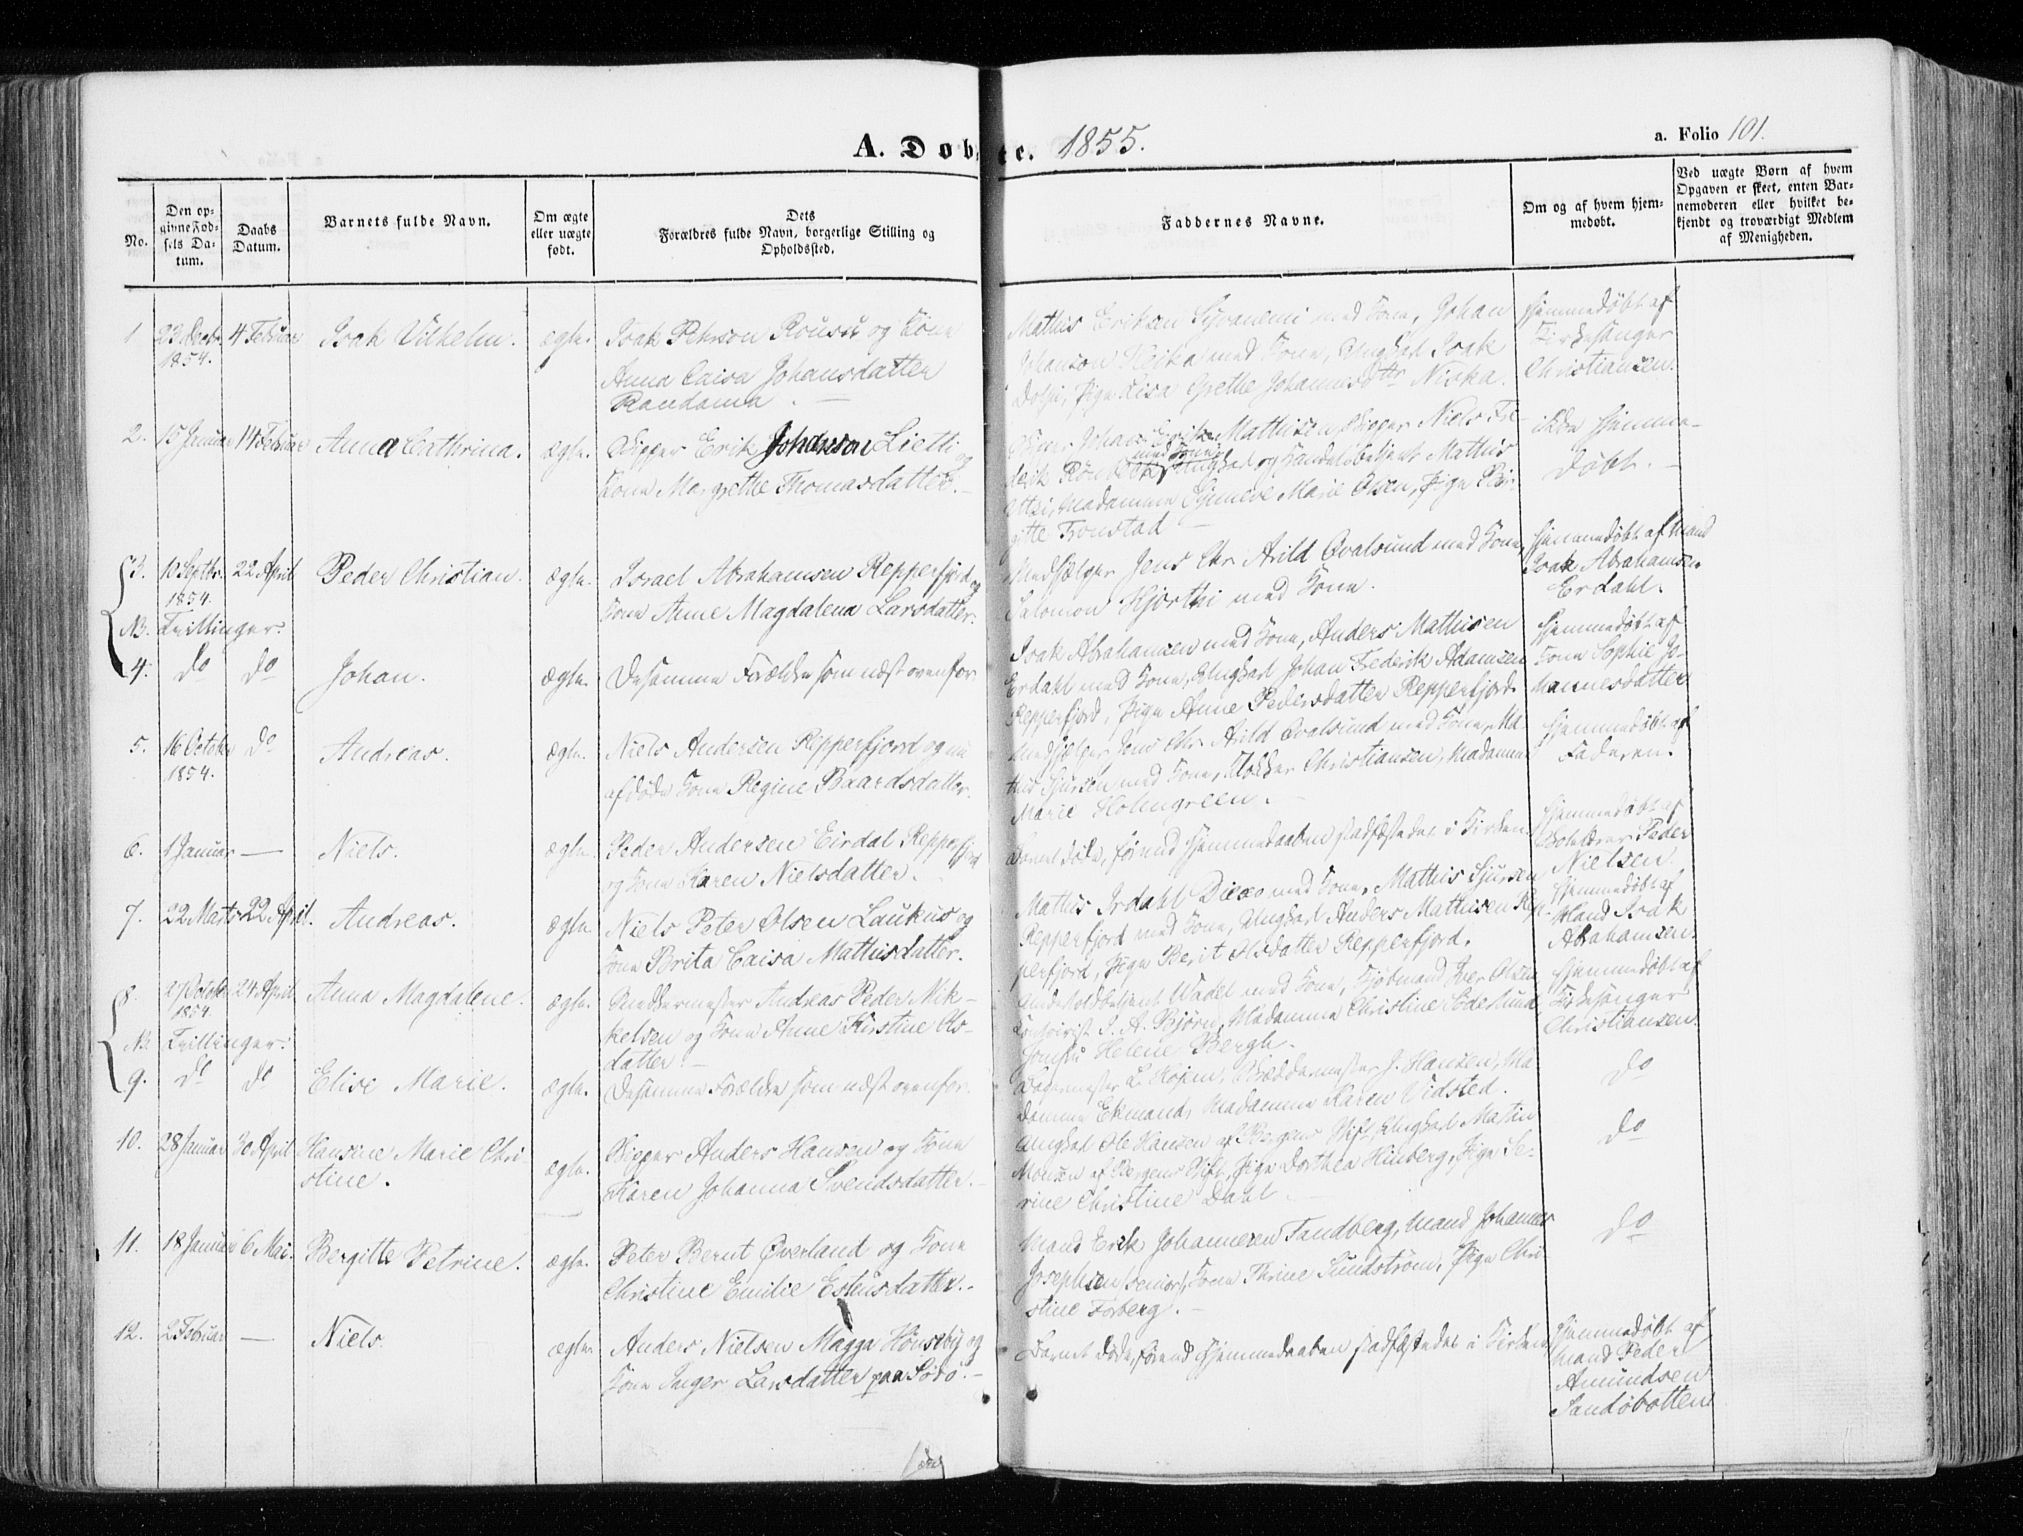 A. Døbte. 1855.
a. Folio 101.
No.
Den opgivne Fødsels Datum.
Daabs Datum.
Barnets fulde Navn.
Om ægte eller uægte født.
Dets Forældres fulde Navn, borgerlige Stilling og Opholdssted.
Faddernes Navne.
Om og af hvem hjemmedøbt.
Ved uægte Børn af hvem Opgaven er skeet, enten Barnemoderen eller hvilket bekjendt og troværdigt Medlem af Menigheden.
1 23 Decbr. 1854. 4 Februar Isak Vilhelm. ægte.
Isak Pehrson Rousu og Kone
Anna Caisa Johansdatter
Mathis Eriksen Syvanemi med Kone, Johan
Johanson Keika med Kone, Ungkarl Isak
Pige Lisa Grethe Johannesdtr Niska.
Hjemmedøbt af
Kirkesanger
Christiansen.
2. 15 Januar 14 Februar Anna Cathrina. ægte.
Skipper Erik Johanson Lietti og
Kone Margrethe Thomasdatter.
Johan Erik Mathisen Skipper Niels Fre-
derik med Kone Ungkarl og Handelsbetjent Mathis
Madamme Synneve Marie Olsen, Pige Bir-
gitte Tronstad
ikke hjemme-
døbt.
3. 10 Septbr. 1854. 22 April Peder Christian. ægte.
NB. Tvillinger.
Israel Abrahamsen Repperfjord og
Kone Anne Magdalena Larsdatter.
Medhjælper Jens Chr. Arild Qvalsund med Kone,
Salomon Hjorthi med Kone.
Hjemmedøbt af Mand
Isak Abrahamsen
Erdahl.
4. do do Johan. ægte.
Desamme Forældre som næst ovenfor
Isak Abrahamsen med Kone, Anders Mathisen
Erdahl med Kone, Ungkarl Johan Frederik Adamsen
Repperfjord, Pige Anne Pedersdatter Repperfjord.
Hjemmedøbt af
Kone Sophie Jo-
hannesdatter
5. 16 October 1854. do Andreas. ægte.
Niels Andersen Repperfjord og nu
afdøde Kone Regine Baardsdatter.
Medhjælper Jens Chr. Arild Qvalsund med Kone, Ma-
this Sjursen med Kone, Klokker Christiansen, Madamme
Marie Holmgreen.
Hjemmedøbt af
Faderen.
6. 1 Januar — Niels. ægte.
Peder Andersen Eirdal Repperfjord
og Kone Karen Nielsdatter.
Barnet døde, førend Hjemmedaaben stadfæstedes i Kirken.
Hjemmedøbt af
Peder
Nielsen.
7. 22 Marts 22 April. Andreas. ægte.
Niels Peter Olsen Laukus og
Kone Brita Caisa Mathisdatter.
Mathis Irdahl med Kone, Mathis Sjursen
Repperfjord med Kone, Ungkarl Anders Mathisen Rep-
perfjord, Pige Berit Olsdatter Repperfjord.
Hjemmedøbt af
Mand Isak
Abrahamsen.
8. 27 October 1854. 24 April Anna Magdalene. ægte.
NB. Tvillinger.
Snedkermester Andreas Peder Mik-
kelsen og Kone Anne Kirstine Ols-
datter.
Underfoldbetjent Wadel med Kone, Kjøbmand Iver Olsen
J. A. Bjørn, Madamme Christine Søderlund
Jomfru Helene Bergh.
Hjemmedøbt af
Kirkesanger
Christiansen.
9. do do Elise Marie. ægte.
Desamme Forældre som næst ovenfor.
Bagermester L. Højem, Skræddermester J. Hansen, Ma-
damme Ekmand, Madamme Karen Vidsted.
do
10. 28 Januar 30 April Hansine Marie Chri-
stine. ægte.
Skipper Anders Hansen og Kone
Karen Johanna Svendsdatter.
Ungkarl Ole Hansen af Bergens Stift, Ungkarl Matin
Monsen af Bergens Stift, Pige Dorthea Hinberg, Pige Se-
rine Christine Dahl.
do
11. 18 Januar 6 Mai. Bergitte Petrine. ægte.
Peter Bernt Øverland og Kone
Christine Emilie Estensdatter.
Mand Erik Johannesen Sandberg, Mand Johannes
Josephsen senior, Kone Thrine Sundstrøm, Pige Chri-
stine Forberg.
do
12. 2 Februar — Niels. ægte.
Anders Nielsen Magga Hønseby og
Kone Inger Larsdatter paa Sørø.
Barnet døde, førend Hjemmedaaben stadfæstedes i Kirken
Hjemmedøbt af
Mand Peder
Amundsen
Sandøbotten